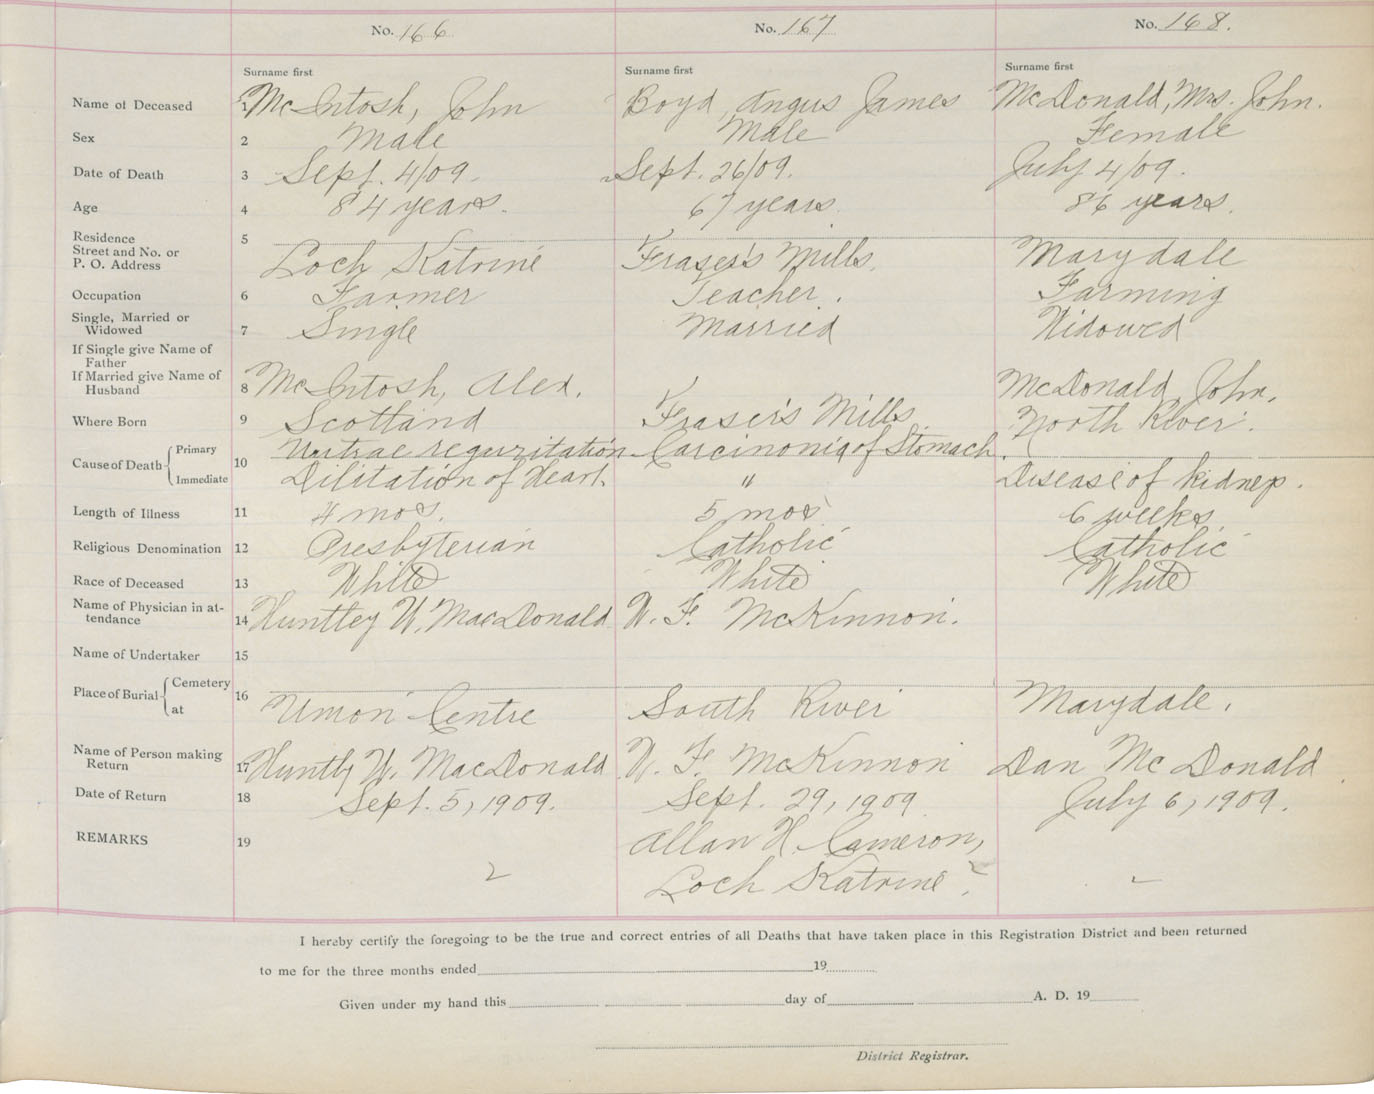 No. 166 No. 167 No. 168.
Surname first Surname first Surname first
Name of Deceased 1 McIntosh, John Boyd, Angus James McDonald, Mrs. John.
Sex 2 Male Male Female
Date of Death 3 Sept. 4/09. Sept. 26/09. July 4/09.
Age 4 84 years. 67 years. 86 years.
Residence 5
Street and No. or
P. O. Address Loch Katrine Fraser's Mills. Marydale
Occupation 6 Farmer Teacher. Farming
Single, Married or
Widowed 7 Single Married Widowed
If Single give Name of
Father
If Married give Name of
Husband 8 McIntosh, Alex. McDonald, John.
Where Born 9 Scotland Fraser's Mills North River.
Cause of Death 10 Primary reguritation Carcinonia of Stomach.
Immediate Dilitation of Heart. " Disease of kidney.
Length of Illness 11 4 mos. 5 mos 6 weeks.
Religious Denomination 12 Presbyterian Catholic Catholic
Race of Deceased 13 White White White
Name of Physician in at-
tendance 14 Huntley W. MacDonald W. F. McKinnon.
Name of Undertaker 15
Place of Burial 16 Cemetery
at Union Centre South River Marydale.
Name of Person making
Return 17 Huntly W. MacDonald W. F. McKinnon Dan McDonald.
Date of Return 18 Sept. 5, 1909. Sept. 29, 1909 July 6, 1909.
REMARKS 19 Allan W. Cameron,
Loch Katrine.
I hereby certify the foregoing to be the true and correct entries of all Deaths that have taken place in this Registration District and been returned
to me for the three months ended 19
Given under my hand this day of A. D. 19
District Registrar.